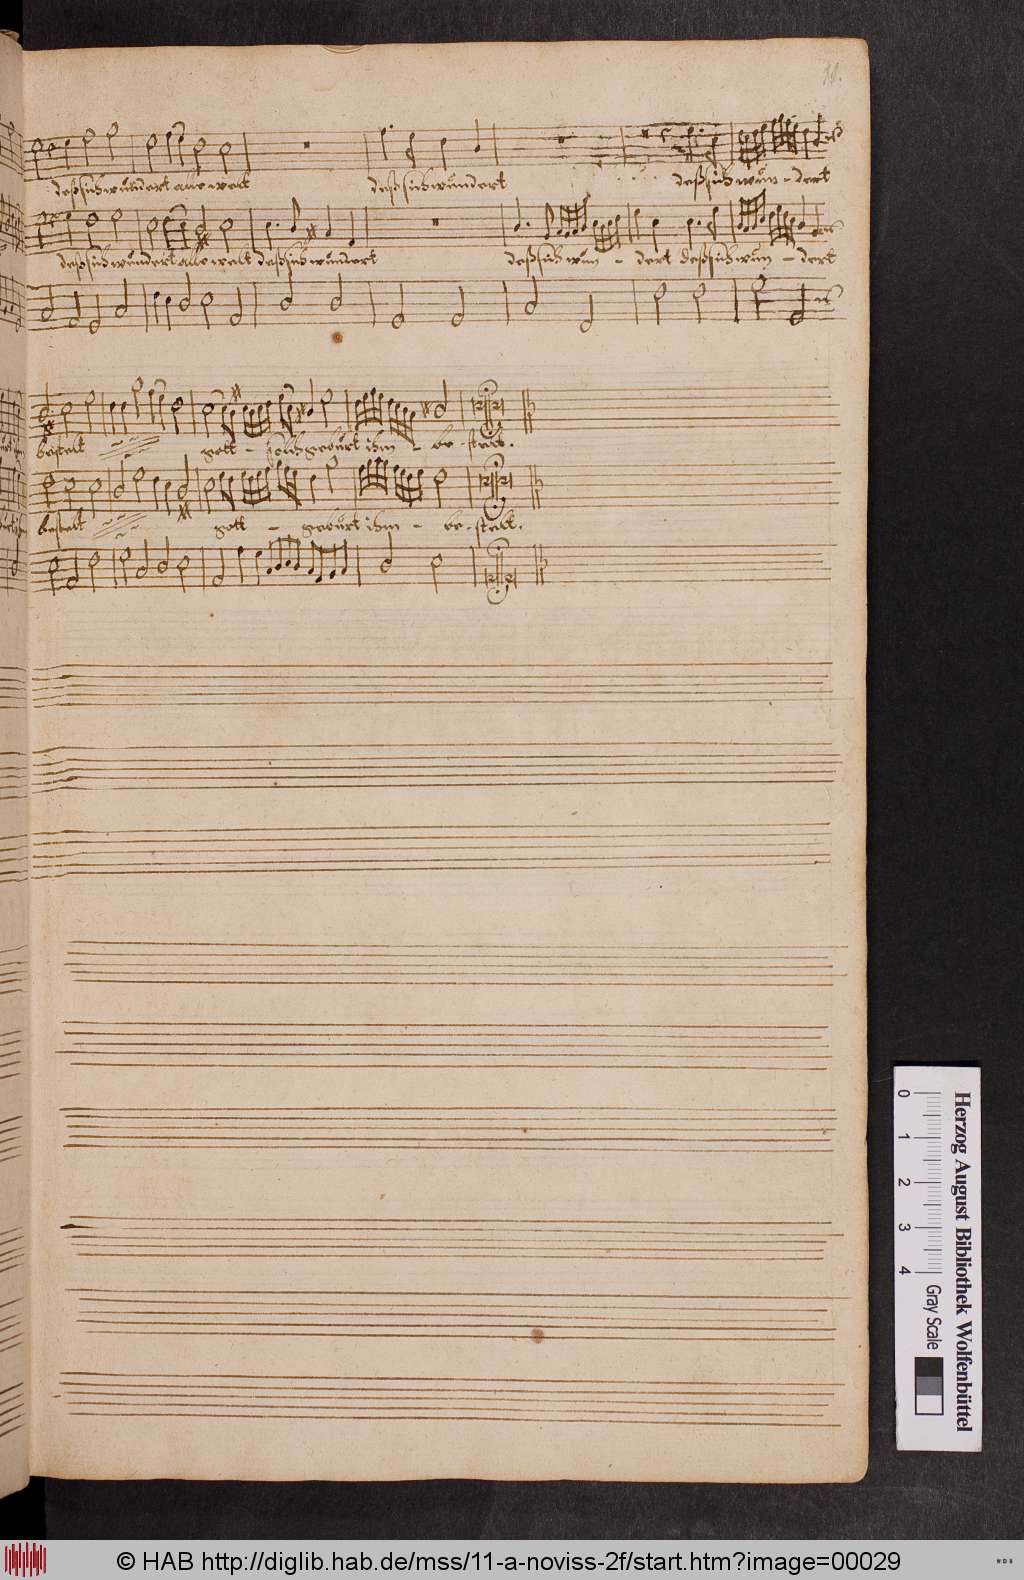 11.
deß sich wundert alle welt deß sich wundert deß sich wun - dert
deß sich wundert alle welt deß sich wundert deß sich wun - dert deß sich wun - dert
bestelt gott - solch geburt ihm - be - stelt.
bestelt gott - geburt ihm - be - stelt.
Herzog August Bibliothek Wolfenbüttel
0 1 2 3 4 Gray Scale
© HAB http://diglib.hab.de/mss/11-a-noviss-2f/start.htm?image=00029